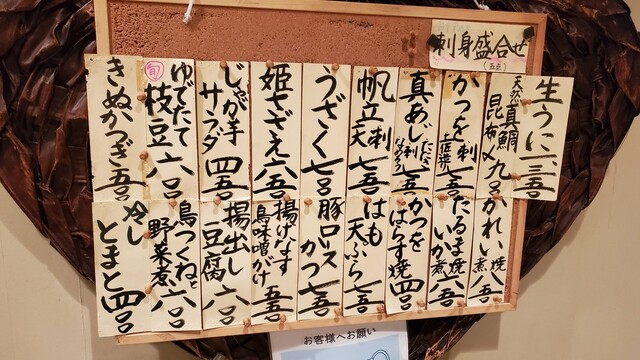 刺身盛合せ
(五点)
生うに 一、三五〇
天然真鯛
昆布〆 九〇〇
かつを刺
土佐造り 七五〇
真あじ刺
たたき
なめろう 七五〇
帆立刺
天 七五〇
うざく 七〇〇
姫さざえ 六五〇
じゃが芋
サラダ 四五〇
ゆでたて
旬 枝豆 六〇〇
きぬかつぎ 五五〇
かれい焼
煮 八五〇
だるま焼
いか煮 六五〇
かつを
はらす焼 四五〇
はも
天ぷら 七五〇
豚ロース
かつ 七五〇
揚げなす
鳥味噌がけ 五五〇
揚出し
豆腐 六〇〇
鳥つくねと
野菜煮 六〇〇
冷し
とまと 四五〇
お客様へお願い